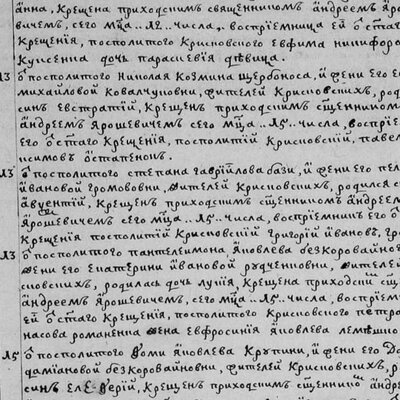 анна, крещена приходскимъ священникомъ андреемъ яро
вичемъ, сего мца .. числа, воспрїемница ей ѿ стаго
крещенїя, посполитого крисновского евфима никифоро
дочь параскевїя дѣвица.
13 ѿ посполитого николая козмина щербоноса, и жени его е
михайловой ковалчуковни, жителей крисновскихъ, ро
синъ евстратїй, крещенъ приходскимъ сщенником
андреемъ ярошевичемъ сего мца .. числа, воспрїе
его ѿ стаго крещенїя, посполитїй крисновскїй, павел
исимовъ
13 ѿ посполитого степана гаврїйлова бази, и жени его пел
ивановой громововни, жителей крисновскихъ, родился с
авуентїй, крещенъ приходскимъ сщенникомъ андреем
ярошевичемъ сего мца .. числа, воспрїемникъ его ѿ
крещенїя посполитїй крисновскїй григорїй ивановъ, гр
13 ѿ посполитого пантелеимона яковлева безкоровайно
жени его екатерини ивановой рудченковни, жителей
сновскихъ, родилась дочь лукїя, крещена приходскимъ сщ
андреемъ ярошевичемъ, сего мца .. числа, воспрїем
ей ѿ стаго крещенїя, посполитого крисновского петра
насова романенка жена евфросинїя яковлева лемешко
15 ѿ посполитого фоми яковлева крупини, и жени его до
дамїановой безкоровайновни, жителей крисновскихъ, р
синъ елеѵферїй, крещенъ приходскимъ сщенникомъ андре